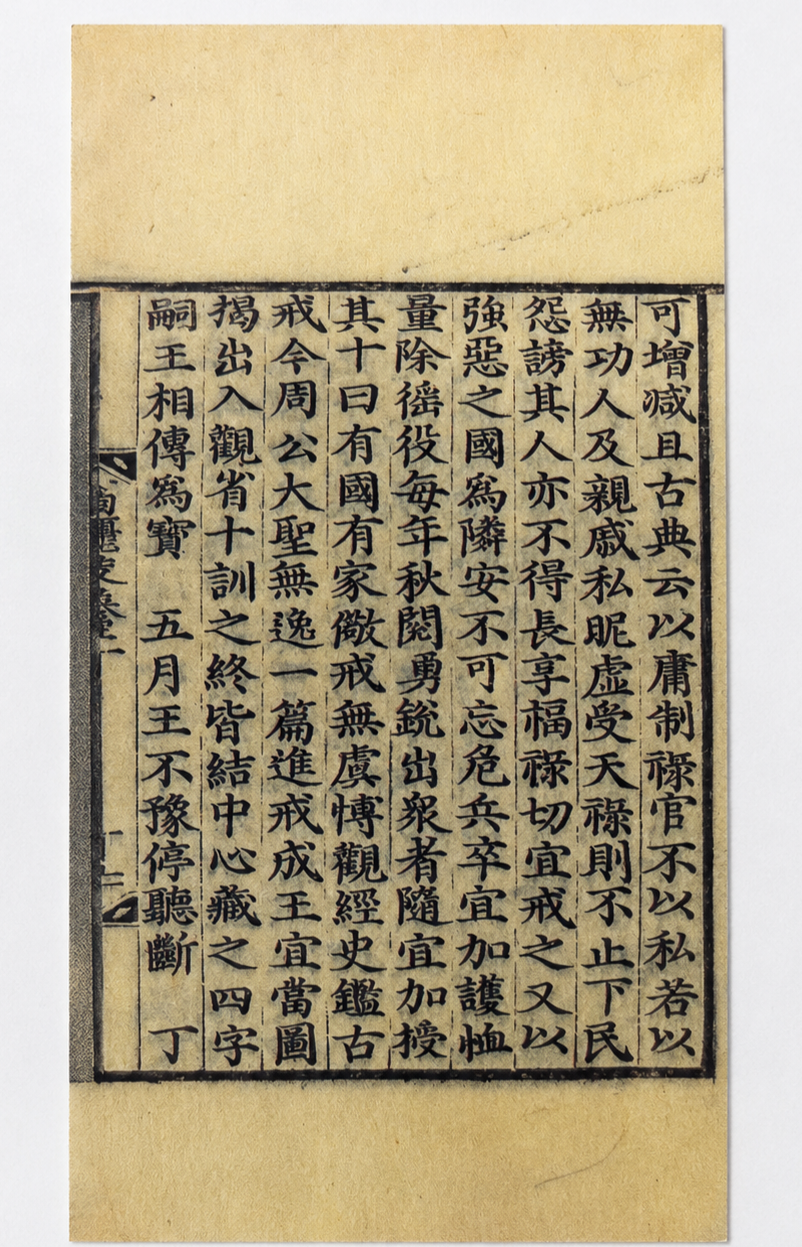 可增减且古典云以庸制祿官不以私若以
無功人及親戚私昵虛受天祿則不止下民
怨謗其人亦不得長享福祿切宜戒之又以
強惡之國爲隣安不可忘危兵卒宜加護恤
量除徭役每年秋閱勇銳出衆者隨宜加授
其十曰有國有家儆戒無虞愽觀經史鑑古
戒今周公大聖無逸一篇進戒成王宜當圖
揭出入觀省十訓之終皆結中心藏之四字
嗣王相傳爲寶　五月王不豫停聽斷　丁